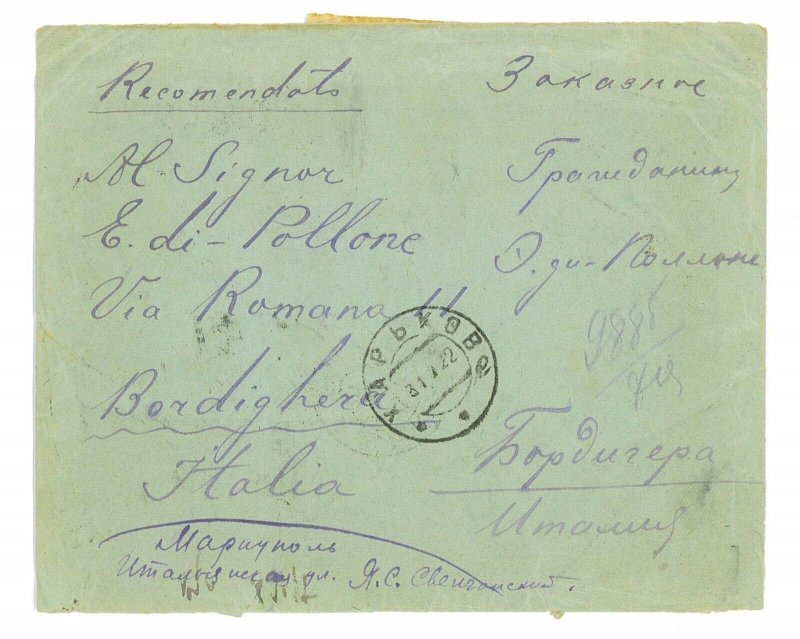 Recomendato
Al. Signor
E. di-Pollone
Via Romana 11
Bordighera
Italia
Заказное
Гражданину
Э. ди-Поллоне
Бордигера
Италия
9885
ХАРЬКОВ
31.1.22
Мариуполь
Итальянская ул. Я. С. Свенчанский.